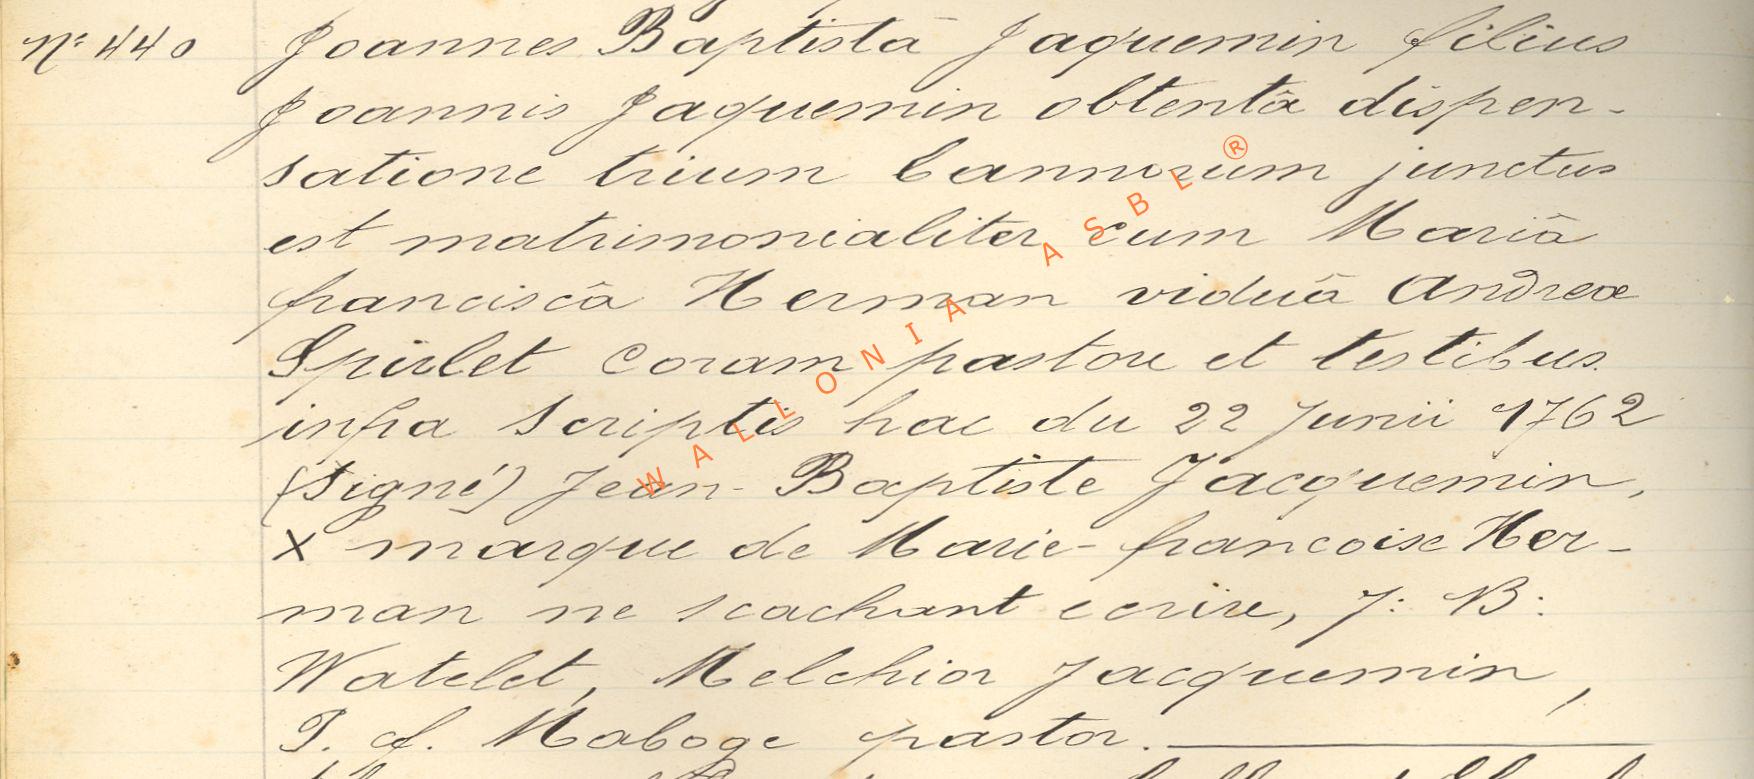 N° 440 Joannes Baptistâ Jaquemin filius
Joannis Jaquemin obtentâ dispen-
satione trium bannorum junctus
est matrimonialiter cum Mariâ
franciscâ Herman viduâ Andreæ
Spirlet coram pastore et testibus
infra scriptis hac du 22 Junii 1762
(signé) Jean-Baptiste Jacquemin,
X marque de Marie-francoise Her-
man ne scachant ecrire, J: B:
Watelet, Melchior Jacquemin,
J. f. Maboge pastor.
WALLONIA ASBL ®